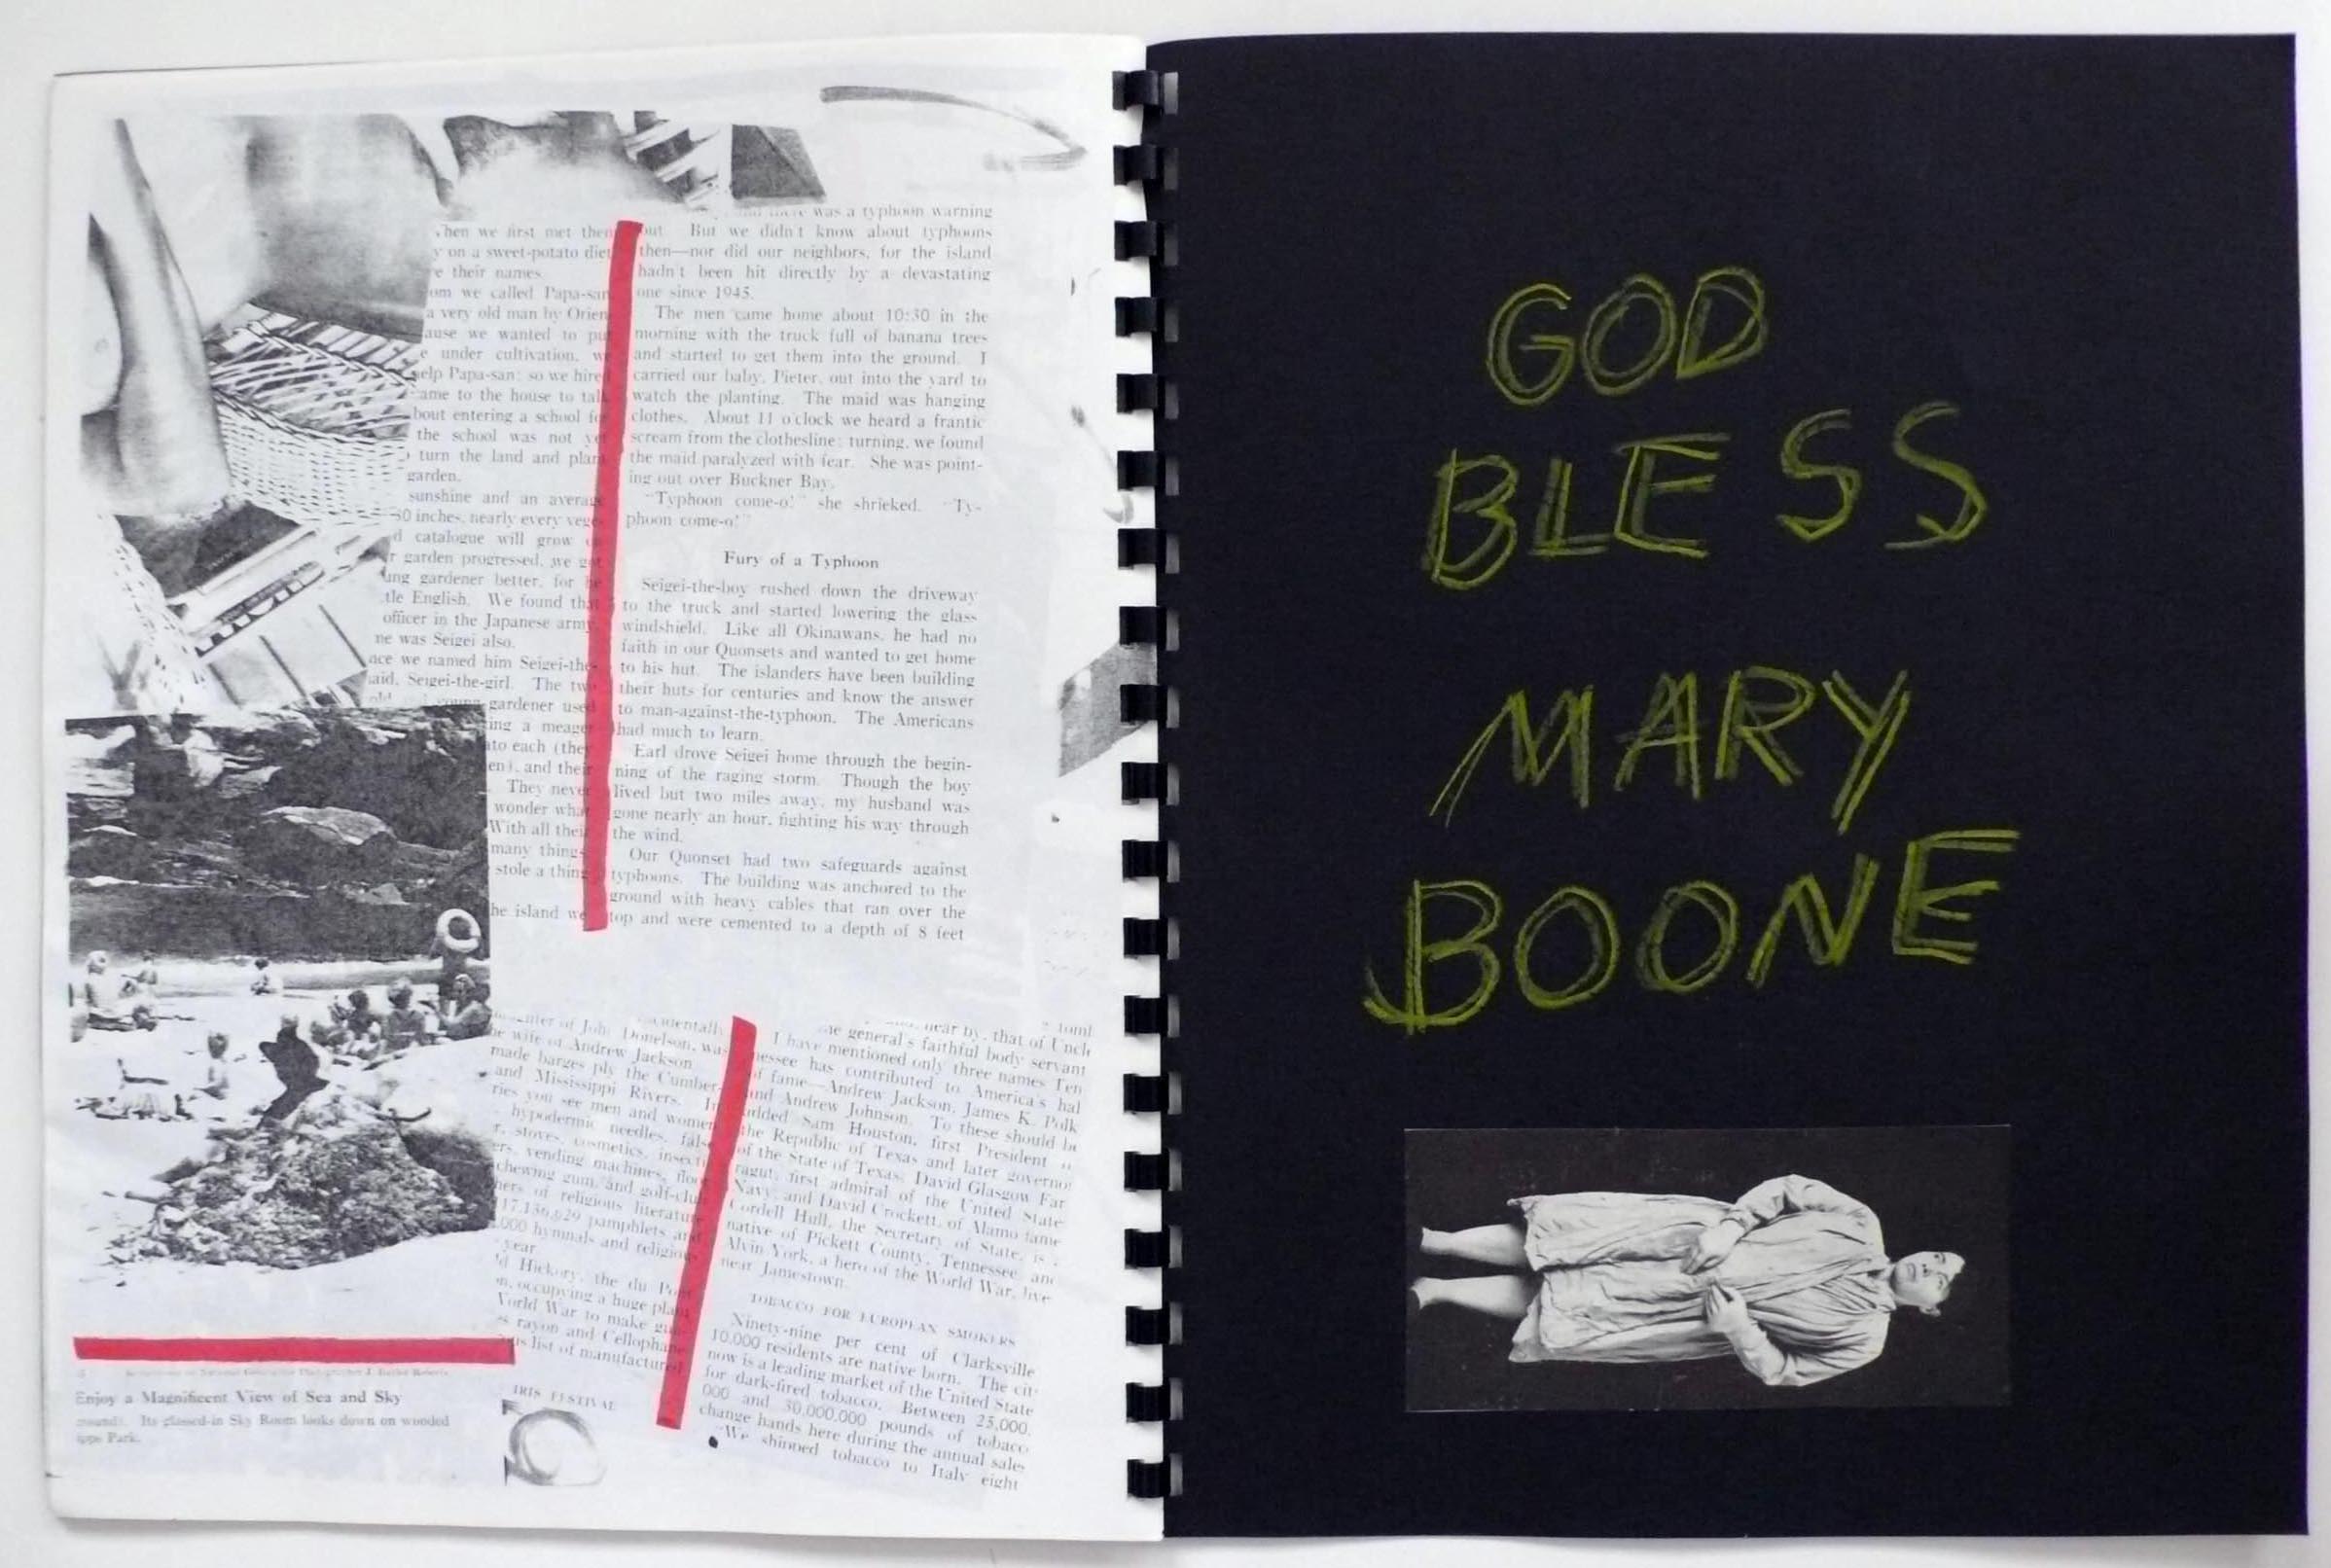 hen we first met then
y on a sweet-potato diet
e their names.
om we called Papa-san
a very old man by Orien
ause we wanted to pu
e under cultivation, w
elp Papa-san; so we hire
ame to the house to tal
bout entering a school fo
the school was not ye
turn the land and plan
garden.
sunshine and an average
30 inches, nearly every vege
d catalogue will grow
r garden progressed, we go
ung gardener better, for he
tle English. We found tha
officer in the Japanese army
ne was Seigei also.
ace we named him Seigei-the-
aid, Seigei-the-girl. The tw
young gardener used
ing a meager
ato each (they
en), and their
They never
wonder what
With all their
many things
stole a thing
he island we
was a typhoon warning
out. But we didn't know about typhoons
then—nor did our neighbors, for the island
hadn't been hit directly by a devastating
one since 1945.
The men came home about 10:30 in the
morning with the truck full of banana trees
and started to get them into the ground. I
carried our baby, Pieter, out into the yard to
watch the planting. The maid was hanging
clothes. About 11 o'clock we heard a frantic
scream from the clothesline; turning, we found
the maid paralyzed with fear. She was point-
ing out over Buckner Bay.
"Typhoon come-o!" she shrieked. "Ty-
phoon come-o!"
Fury of a Typhoon
Seigei-the-boy rushed down the driveway
to the truck and started lowering the glass
windshield. Like all Okinawans, he had no
faith in our Quonsets and wanted to get home
to his hut. The islanders have been building
their huts for centuries and know the answer
to man-against-the-typhoon. The Americans
had much to learn.
Earl drove Seigei home through the begin-
ning of the raging storm. Though the boy
lived but two miles away, my husband was
gone nearly an hour, fighting his way through
the wind.
Our Quonset had two safeguards against
typhoons. The building was anchored to the
ground with heavy cables that ran over the
top and were cemented to a depth of 8 feet
Donelson, wa
e wife of Andrew Jackson.
made barges ply the Cumber-
and Mississippi Rivers. In
ries you see men and women
hypodermic needles, false
r, stoves, cosmetics, insecti
ers, vending machines, floor
chewing gum, and golf-club
hers of religious literature
17,136,829 pamphlets and
,000 hymnals and religious
year.
d Hickory, the du Pont
n, occupying a huge plant
World War to make gun
s rayon and Cellophane
us list of manufactured
IRIS FESTIVAL
near by, that of Uncle
he general's faithful body servant
I have mentioned only three names Ten
nessee has contributed to America's hal
of fame—Andrew Jackson, James K. Polk
and Andrew Johnson. To these should be
added Sam Houston, first President o
the Republic of Texas and later governor
of the State of Texas; David Glasgow Far
ragut, first admiral of the United State
Navy; and David Crockett, of Alamo fame
Cordell Hull, the Secretary of State, is a
native of Pickett County, Tennessee, and
Alvin York, a hero of the World War, live
near Jamestown.
TOBACCO FOR EUROPEAN SMOKERS
Ninety-nine per cent of Clarksville
10,000 residents are native born. The cit
now is a leading market of the United State
for dark-fired tobacco. Between 25,000,
000 and 30,000,000 pounds of tobacc
change hands here during the annual sale
"We shipped tobacco to Italy eight
Enjoy a Magnificent View of Sea and Sky
Its glassed-in Sky Room looks down on wooded
ippe Park.
GOD
BLESS
MARY
BOONE